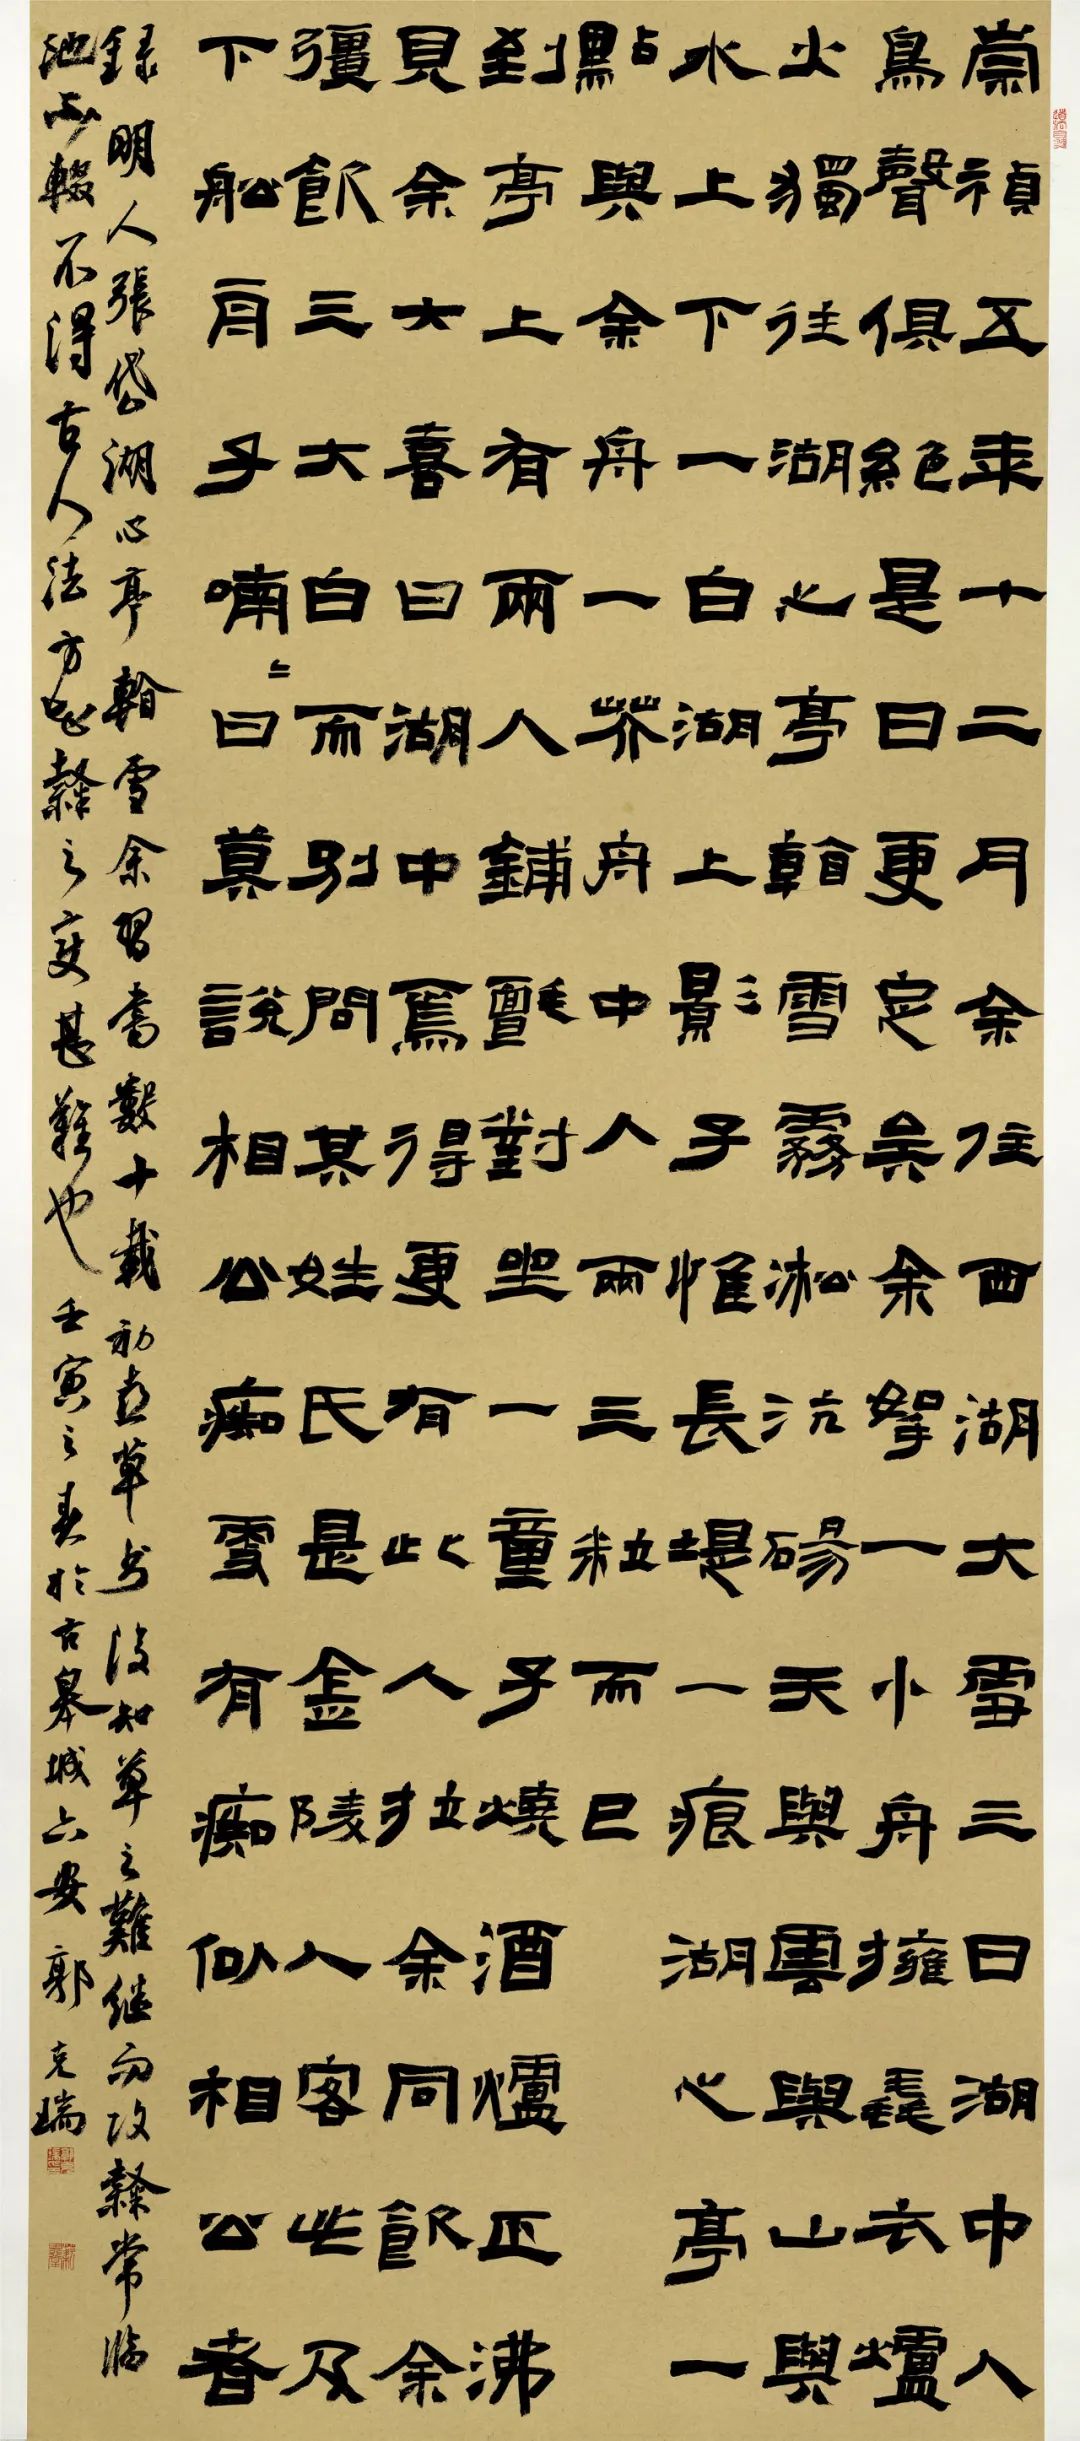 崇禎五年十二月余住西湖大雪三日湖中人
鳥聲俱絕是日更定矣余拏一小舟擁毳衣爐
火獨往湖心亭看雪霧凇沆碭天與雲與山與
水上下一白湖上影子惟長堤一痕湖心亭一
點與余舟一芥舟中人兩三粒而已
到亭上有兩人鋪氈對坐一童子燒酒爐正沸
見余大喜曰湖中焉得更有此人拉余同飲余
彊飲三大白而別問其姓氏是金陵人客此及
下船舟子喃〻曰莫說相公痴雪有痴似相公者
錄明人張岱湖心亭看雪余習書數十載初喜草書後知草之難继而攻隸常臨
池不輟不得古人法方知隸之變甚難也壬寅之春於古皋城六安郭克瑞